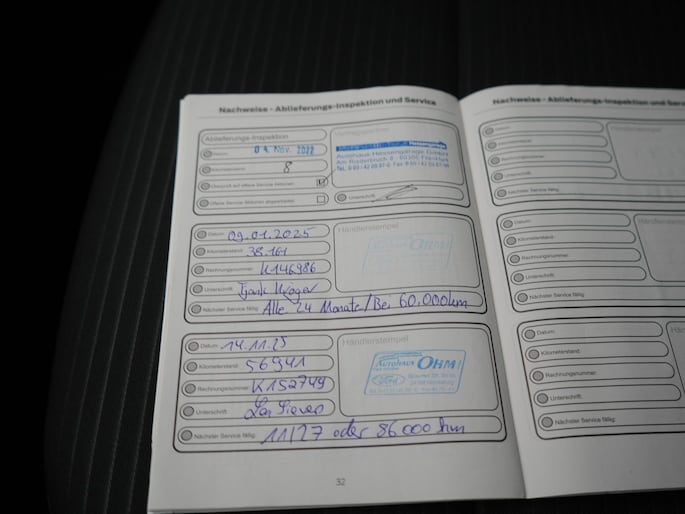 Nachweise - Ablieferungs-Inspektion und Service
Ablieferungs-Inspektion
Datum: 04. Nov. 2022
Kilometerstand: 8
Überprüft auf offene Service-Aktionen:
Offene Service-Aktionen abgearbeitet:
Autohaus
Am Riederbruch 8 60386 Frankfurt
Unterschrift:
Datum: 09.01.2025
Kilometerstand: 38.161
Rechnungsnummer: K146986
Unterschrift:
Nächster Service fällig: Alle 24 Monate/Bei 60.000km
Händlerstempel
OHM
Datum: 14.11.25
Kilometerstand: 56941
Rechnungsnummer: K152749
Unterschrift:
Nächster Service fällig: 11/27 oder 86000 km
Händlerstempel
AUTOHAUS OHM
Ford
32
Nachweise - Ablieferungs-Inspektion und Serv
Datum:
Kilometerstand:
Rechnungsnummer:
Unterschrift:
Nächster Service fällig:
Händlerstempel
Datum:
Kilometerstand:
Rechnungsnummer:
Unterschrift:
Nächster Service fällig:
Händlerstem
Datum:
Kilometerstand:
Rechnungsnummer:
Unterschrift:
Nächster Service fällig:
Händler